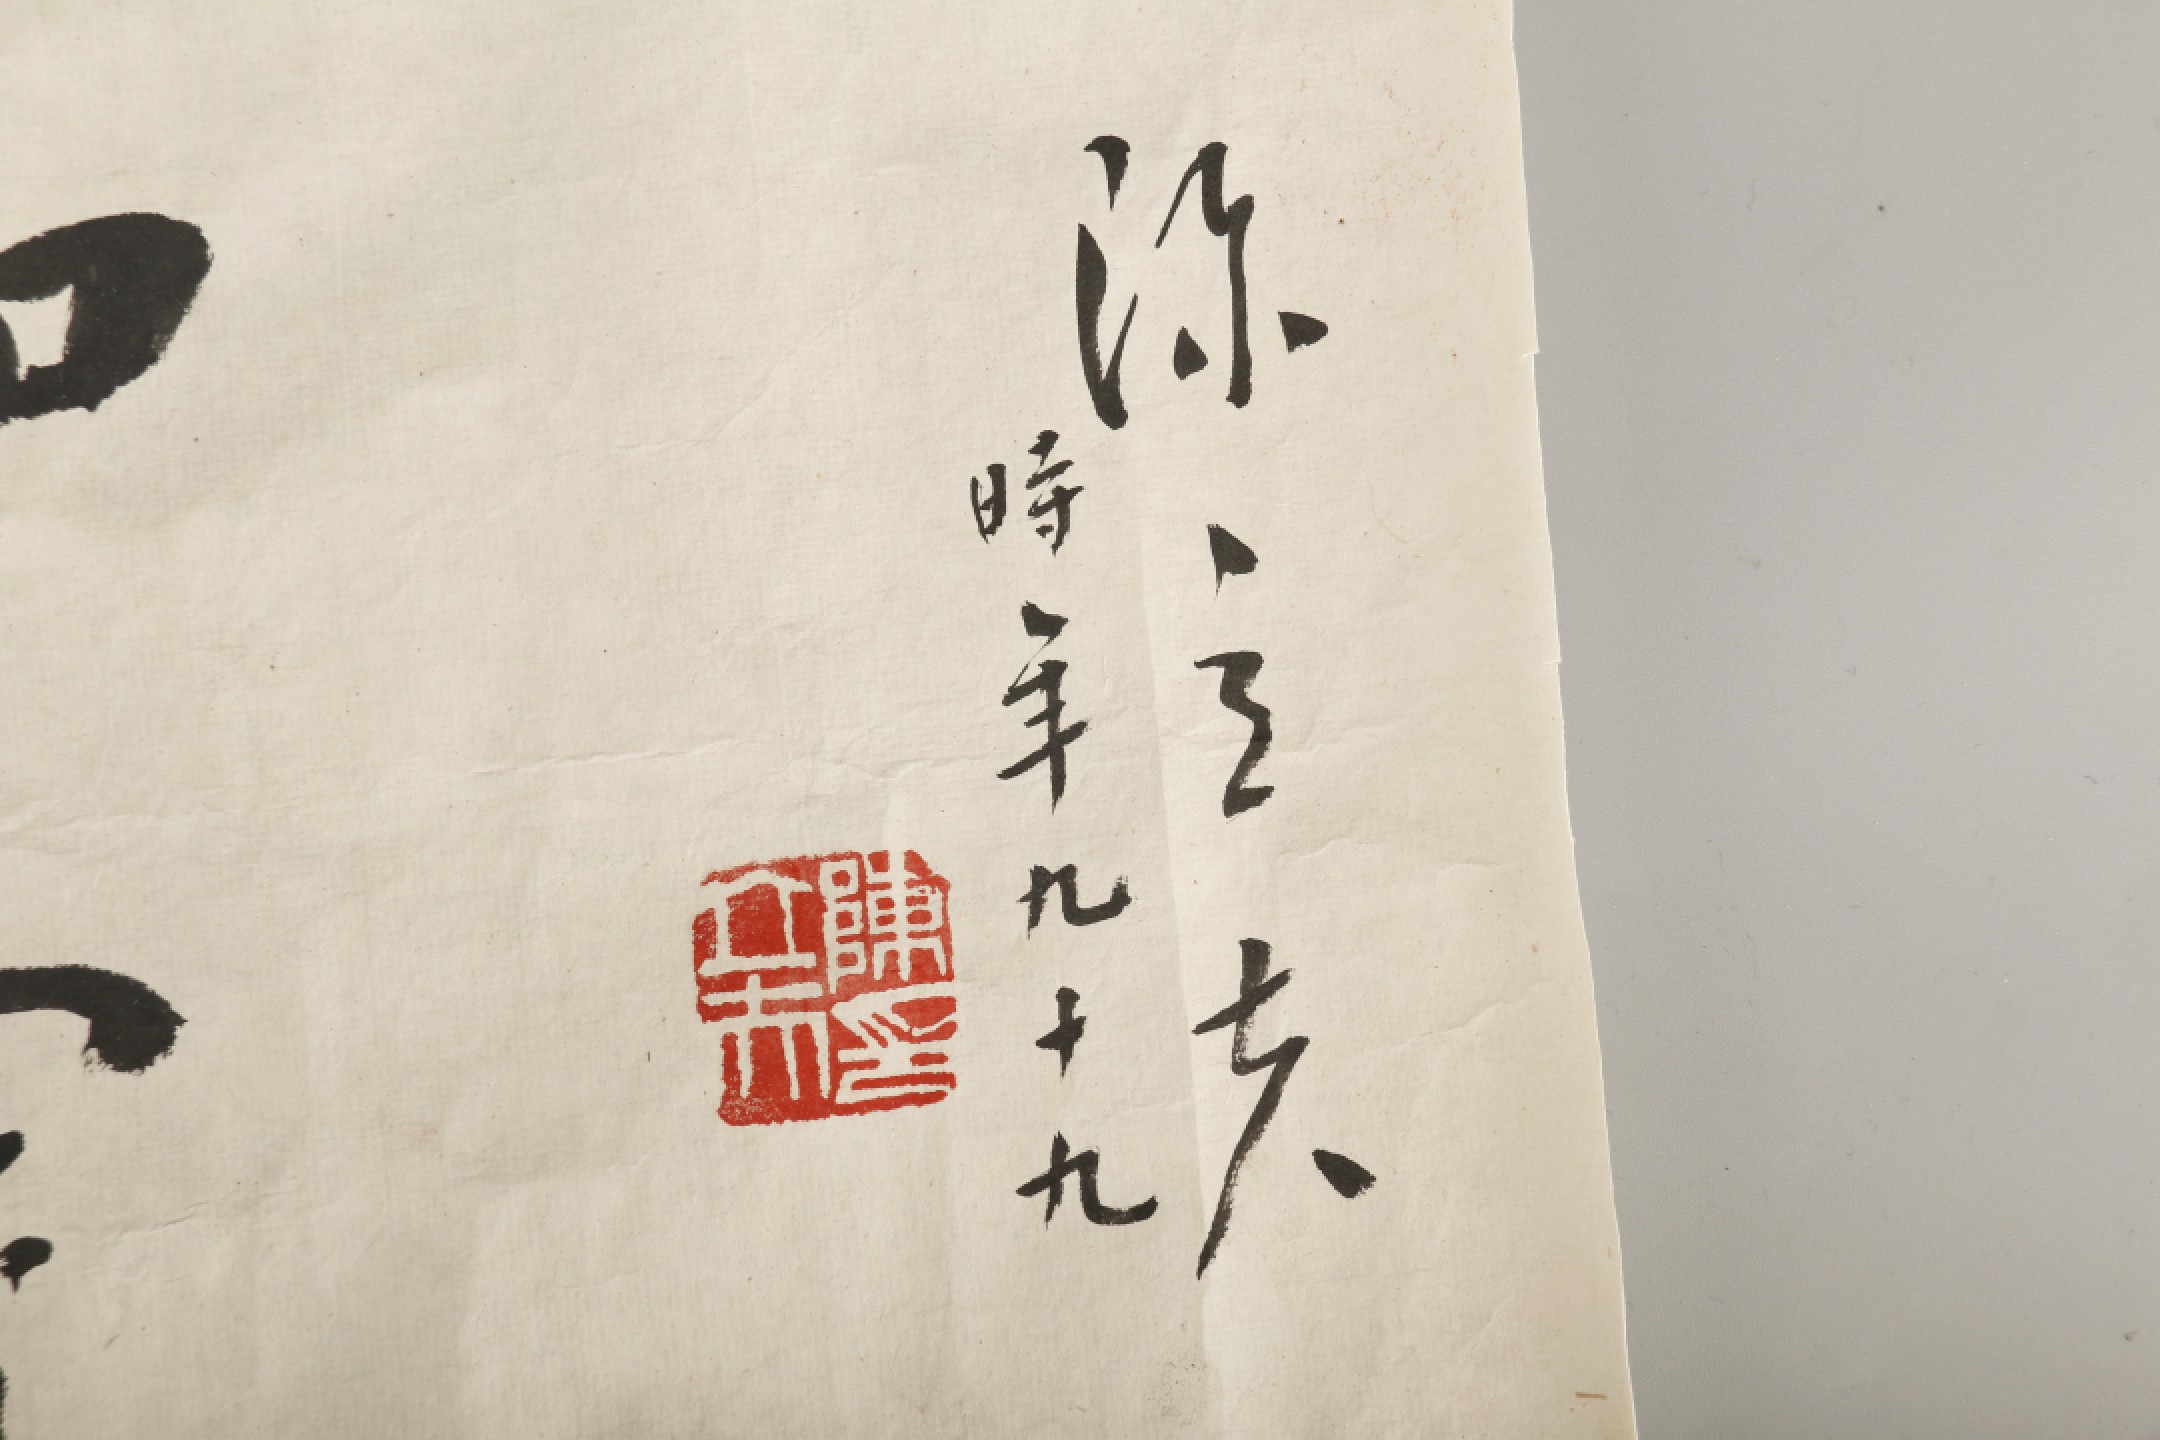 陳立夫
時年九十九
陳立夫印